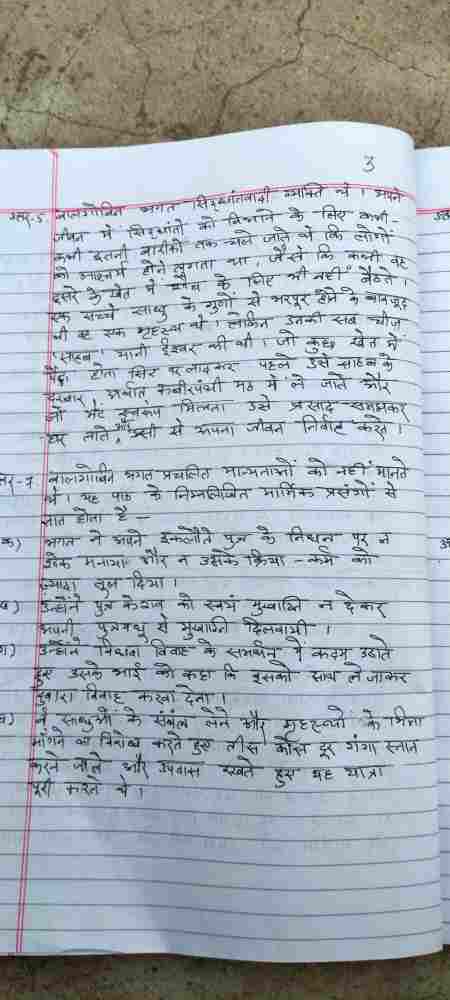 3
उत्तर-5 बालगोबिन भगत सिद्धांतवादी व्यक्ति थे। अपने
जीवन में सिद्धांतों को निभाने के लिए कभी-
कभी इतनी बारीकी तक चले जाते थे कि लोगों
को आश्चर्य होने लगता था, जैसे कि कभी वह
दूसरे के खेत में शौच के लिए भी नहीं बैठते।
एक सच्चे साधु के गुणों से भरपूर होने के बावजूद
भी वह एक गृहस्थ थे। लेकिन उनकी सब चीज
'साहब' यानी ईश्वर की थी। जो कुछ खेत में
पैदा होता सिर पर लादकर पहले उसे साहब के
दरबार, अर्थात् कबीरपंथी मठ में ले जाते और
जो भेंट स्वरूप मिलता उसे प्रसाद समझकर
घर लाते, और उसी से अपना जीवन निर्वाह करते।
उत्तर-7 बालगोबिन भगत प्रचलित मान्यताओं को नहीं मानते
थे। यह पाठ के निम्नलिखित मार्मिक प्रसंगों से
ज्ञात होता है -
क) भगत ने अपने इकलौते पुत्र के निधन पर न
शोक मनाया और न उसके क्रिया-कर्म को
ज्यादा तूल दिया।
ख) उन्होंने पुत्र के शव को स्वयं मुखाग्नि न देकर
अपनी पुत्रवधु से मुखाग्नि दिलवायी।
ग) उन्होंने विधवा विवाह के समर्थन में कदम उठाते
हुए उसके भाई को कहा कि इसको साथ ले जाकर
दुबारा विवाह करवा देना।
घ) वे साधुओं के संबल लेने और गृहस्थों के भिक्षा
माँगने का विरोध करते हुए तीस कोस दूर गंगा स्नान
करने जाते और उपवास रखते हुए यह यात्रा
पूरी करते थे।